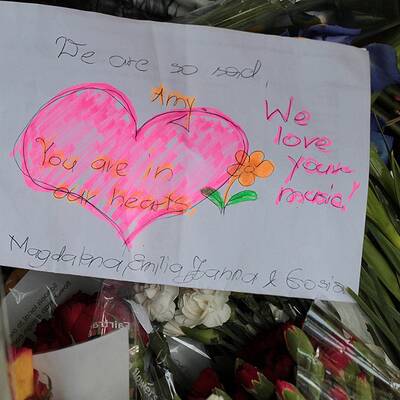 We are so sad,
Amy
You are in
our hearts.
We
love
your
music!
Magdalena, Emilia, Joanna & Gosia